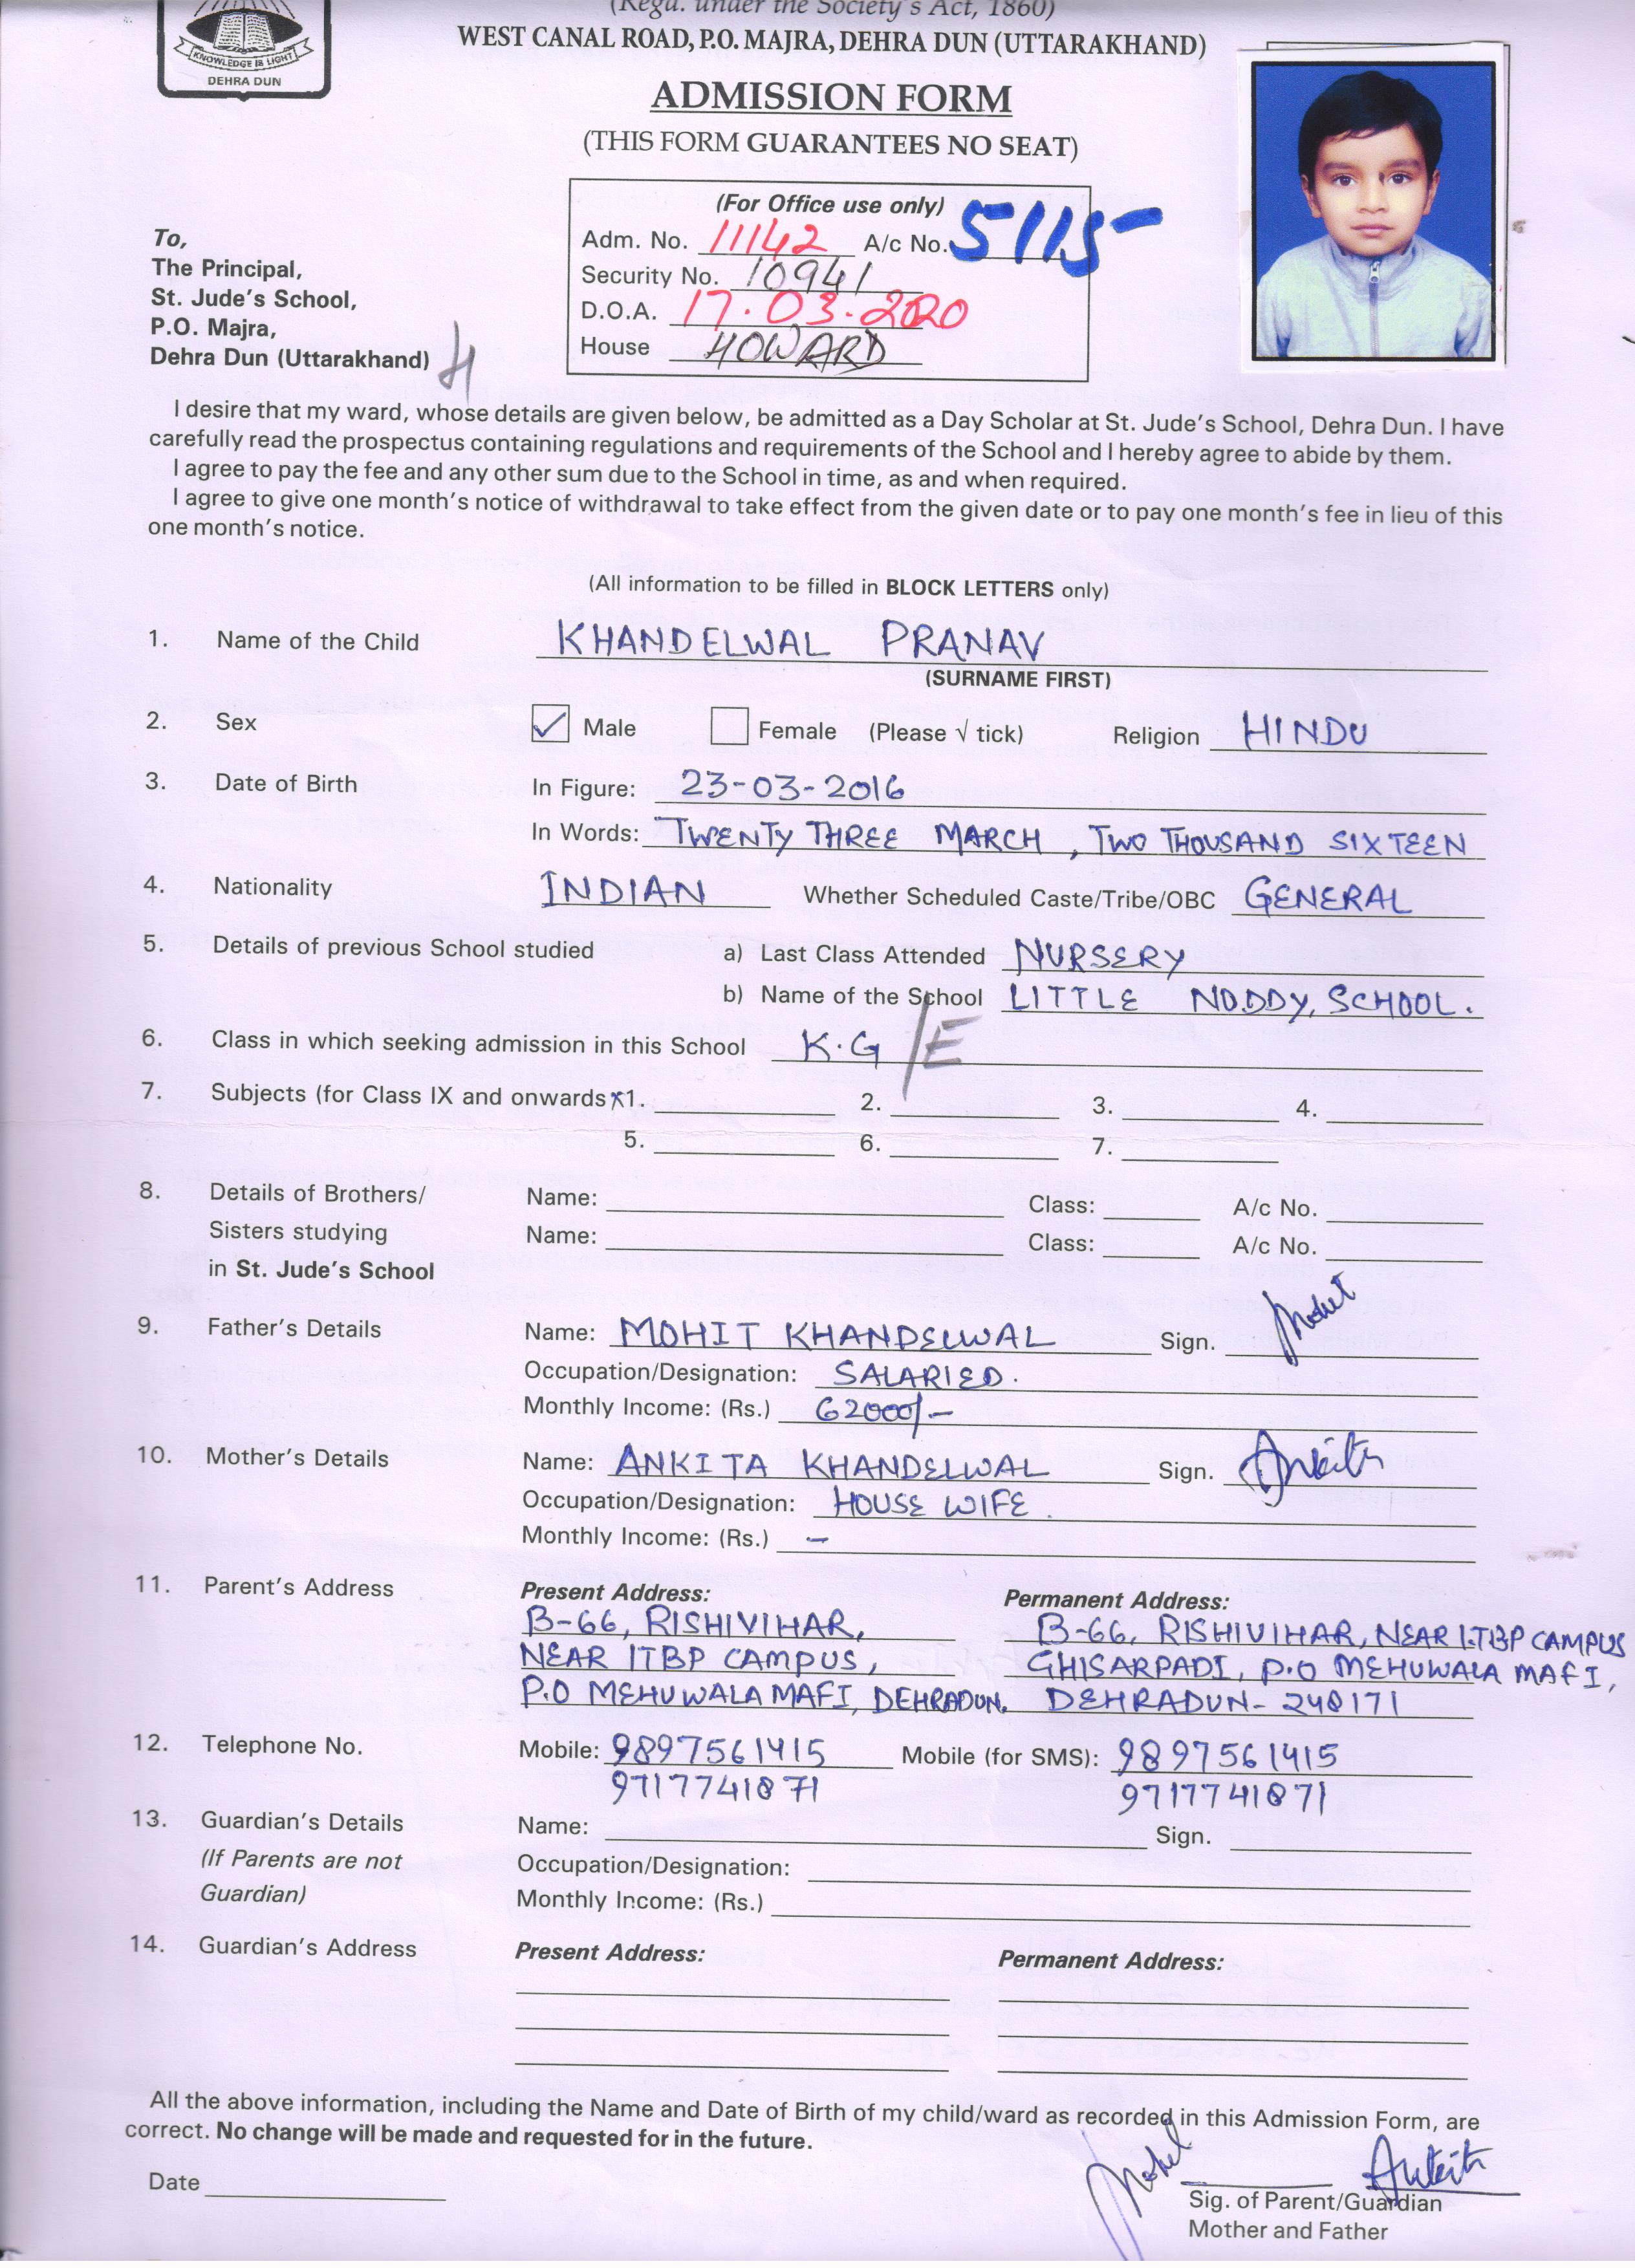 (Regd. under the Society's Act, 1860)
WEST CANAL ROAD, P.O. MAJRA, DEHRA DUN (UTTARAKHAND)
KNOWLEDGE IS LIGHT
DEHRA DUN
ADMISSION FORM
(THIS FORM GUARANTEES NO SEAT)
(For Office use only)
Adm. No. 11142 A/c No. 5115
Security No. 10941
D.O.A. 17.03.2020
House HOWARD
To,
The Principal,
St. Jude's School,
P.O. Majra,
Dehra Dun (Uttarakhand) H
I desire that my ward, whose details are given below, be admitted as a Day Scholar at St. Jude's School, Dehra Dun. I have
carefully read the prospectus containing regulations and requirements of the School and I hereby agree to abide by them.
I agree to pay the fee and any other sum due to the School in time, as and when required.
I agree to give one month's notice of withdrawal to take effect from the given date or to pay one month's fee in lieu of this
one month's notice.
(All information to be filled in BLOCK LETTERS only)
1. Name of the Child KHANDELWAL PRANAV
(SURNAME FIRST)
2. Sex ✓ Male Female (Please √ tick) Religion HINDU
3. Date of Birth In Figure: 23-03-2016
In Words: TWENTY THREE MARCH, TWO THOUSAND SIXTEEN
4. Nationality INDIAN Whether Scheduled Caste/Tribe/OBC GENERAL
5. Details of previous School studied a) Last Class Attended NURSERY
b) Name of the School LITTLE NODDY, SCHOOL.
6. Class in which seeking admission in this School K.G /E
7. Subjects (for Class IX and onwards x1. 2. 3. 4.
5. 6. 7.
8. Details of Brothers/ Name: Class: A/c No.
Sisters studying Name: Class: A/c No.
in St. Jude's School
9. Father's Details Name: MOHIT KHANDELWAL Sign. Mohit
Occupation/Designation: SALARIED.
Monthly Income: (Rs.) 62000/-
10. Mother's Details Name: ANKITA KHANDELWAL Sign. Ankita
Occupation/Designation: HOUSE WIFE.
Monthly Income: (Rs.) -
11. Parent's Address Present Address: Permanent Address:
B-66, RISHIVIHAR, B-66, RISHIVIHAR, NEAR I.TBP CAMPUS
NEAR ITBP CAMPUS, GHISARPADI, P.O MEHUWALA MAFI,
P.O MEHUWALA MAFI, DEHRADUN. DEHRADUN- 248171
12. Telephone No. Mobile: 9897561415 Mobile (for SMS): 9897561415
9717741871 9717741871
13. Guardian's Details Name: Sign.
(If Parents are not Occupation/Designation:
Guardian) Monthly Income: (Rs.)
14. Guardian's Address Present Address: Permanent Address:
All the above information, including the Name and Date of Birth of my child/ward as recorded in this Admission Form, are
correct. No change will be made and requested for in the future.
Mohit Ankita
Date Sig. of Parent/Guardian
Mother and Father